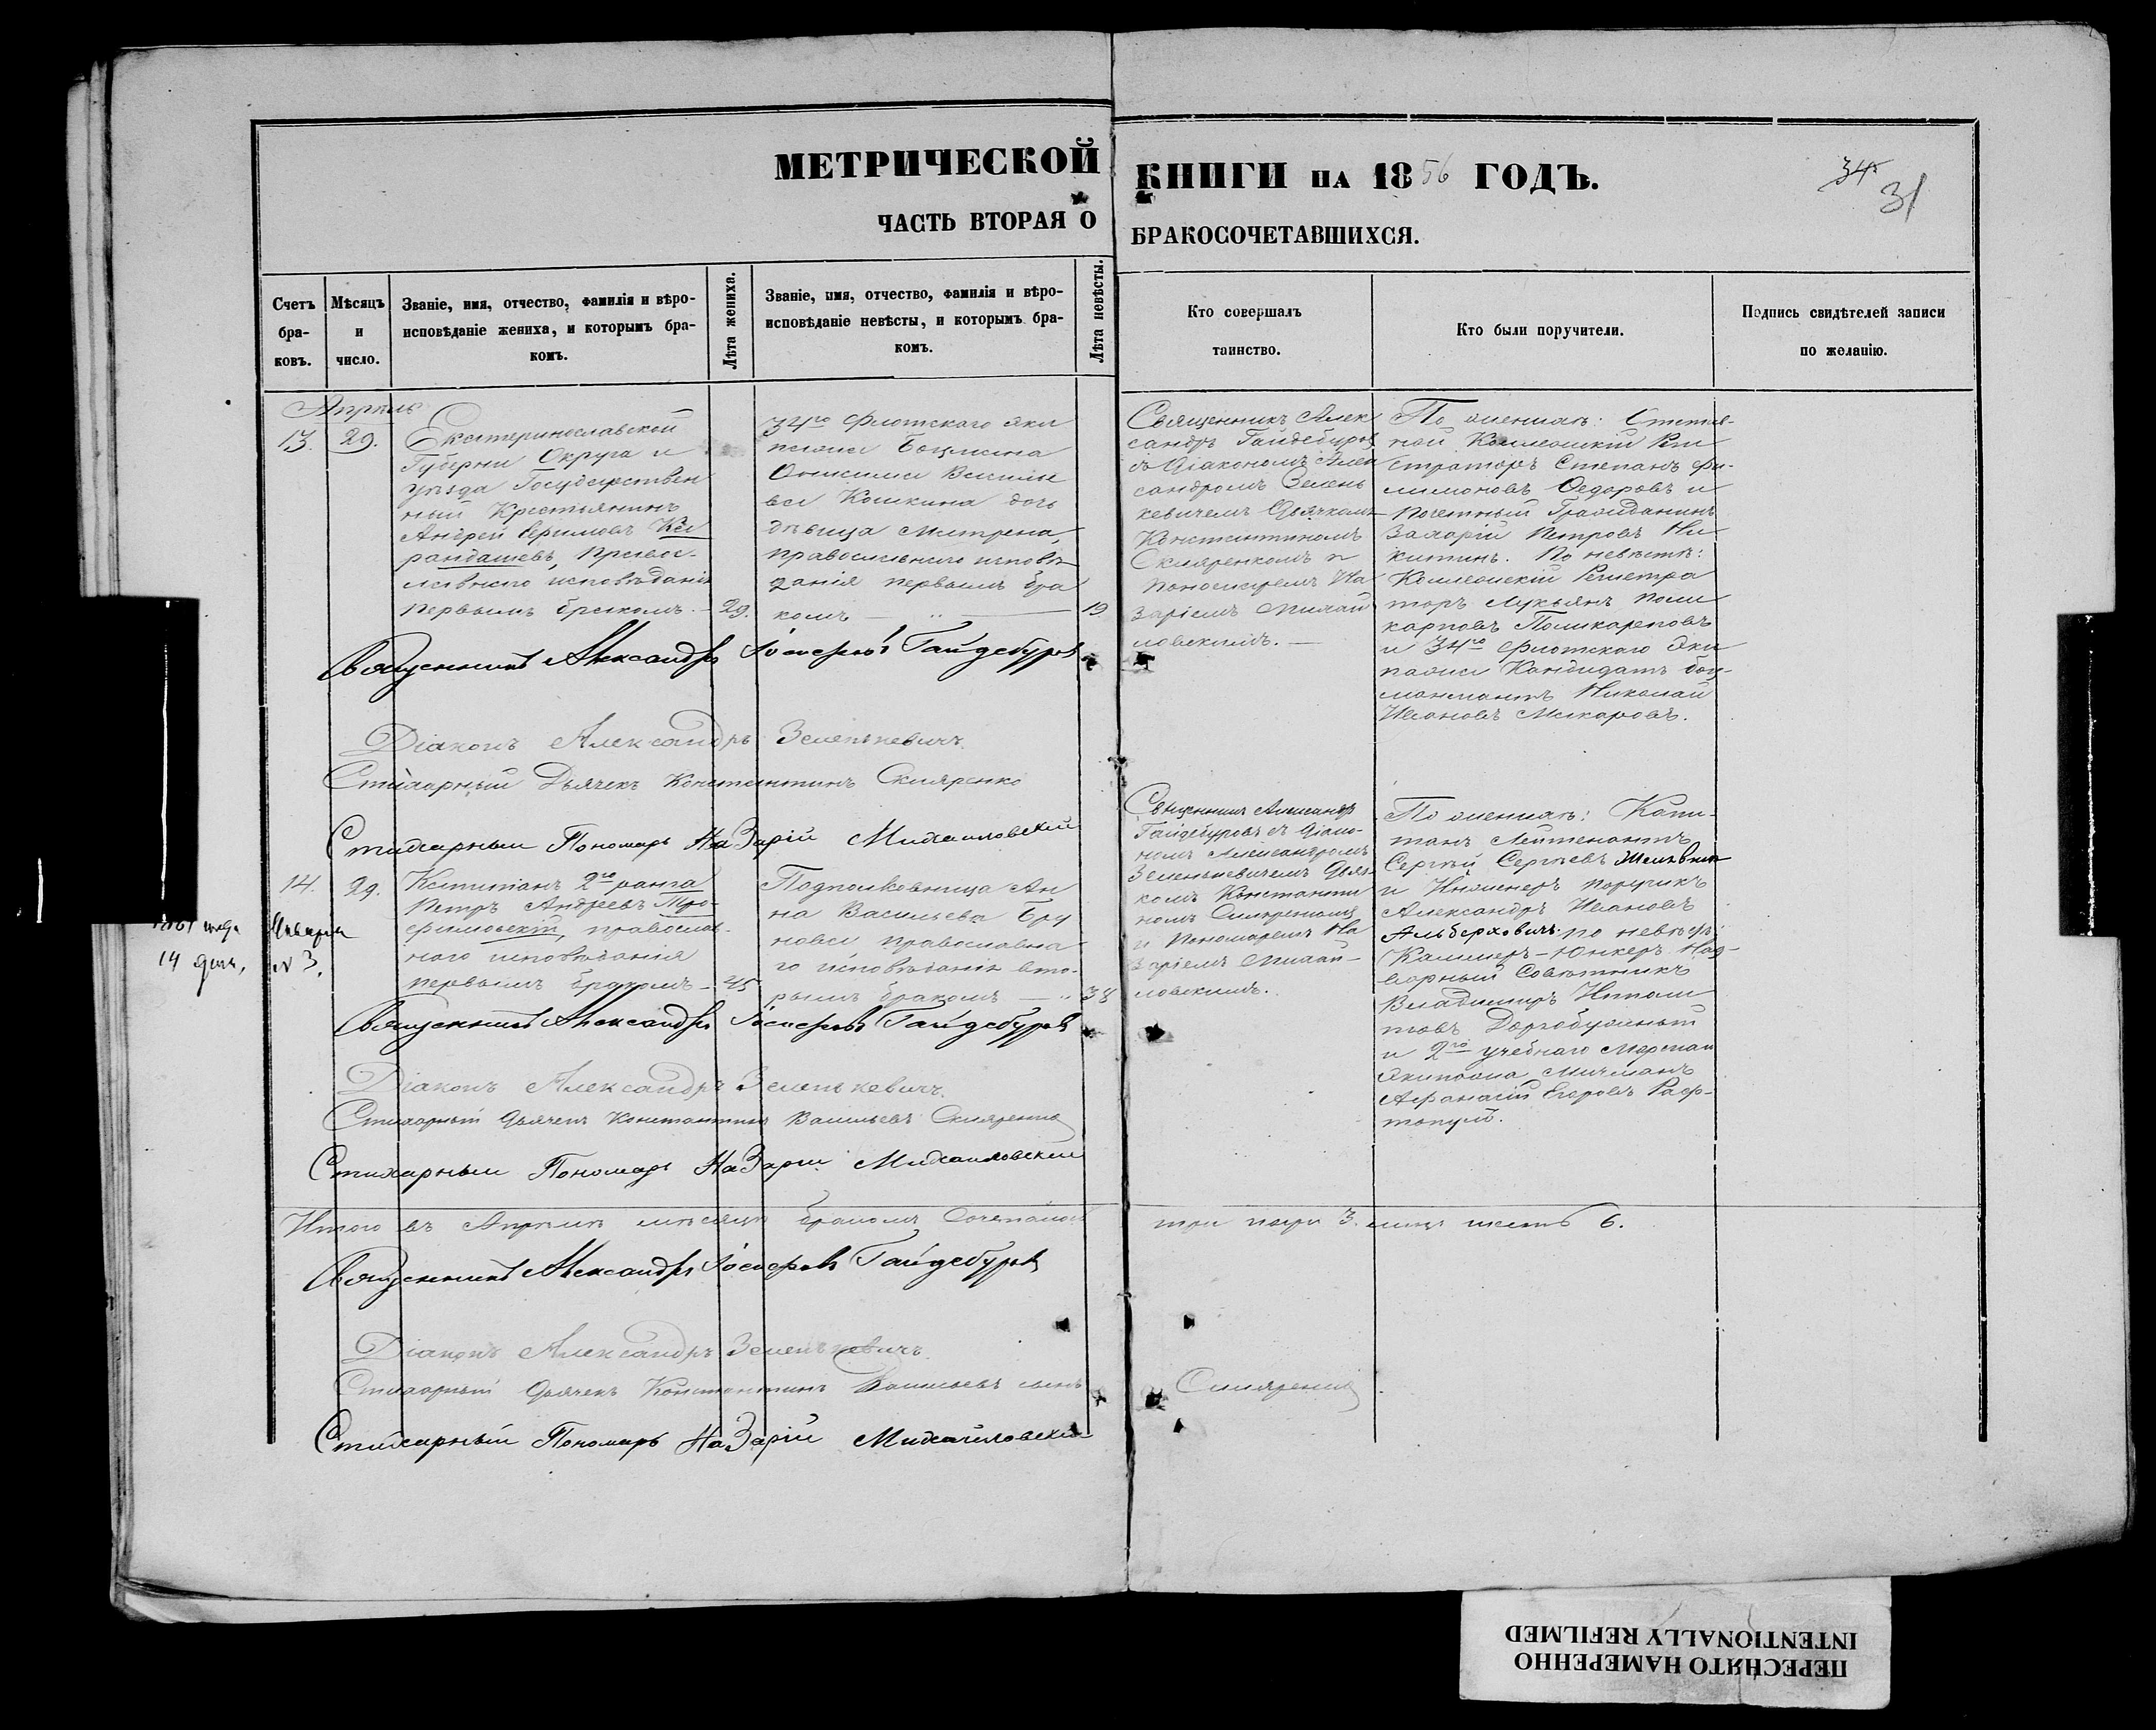 МЕТРИЧЕСКОЙ КНИГИ НА 1856 ГОДЪ.
34
31
ЧАСТЬ ВТОРАЯ О БРАКОСОЧЕТАВШИХСЯ.
Счетъ бра-ковъ.
Мѣсяцъ и число.
Званіе, имя, отчество, фамилія и вѣро-
исповѣданіе жениха, и которымъ бра-
комъ.
Лѣта жениха.
Званіе, имя, отчество, фамилія и вѣро-
исповѣданіе невѣсты, и которымъ бра-
комъ.
Лѣта невѣсты.
Кто совершалъ
таинство.
Кто были поручители.
Подпись свидѣтелей записи
по желанію.
Апрѣль
13.
29.
Екатеринославской
Губерни Округа и
уѣзда Государствен
ный Крестьянинъ
Андрей Ефимовъ Ка
рандашевъ, Право-
славнаго исповѣданія
первымъ бракомъ. —
29.
34го Флотскаго эки
пажа Боцмана
Онисима Василье
ва Кошкина дочь
дѣвица Матрена,
православнаго исповѣ
данія первымъ бра
комъ —
19
Священникъ Алек
сандръ Гайдебуровъ
съ Діакономъ Алек
сандромъ Зелень
кевичемъ Дьячкомъ
Константиномъ
Скляренкомъ и
Пономаремъ На
заріемъ Михай
ловскимъ. —
По женихѣ: Отстав-
ной Коллежскій Реги
страторъ Степанъ Фи-
лимоновъ Федоровъ и
Почетный Гражданинъ
Захарій Петровъ Ни-
китинъ. По невѣстѣ:
Коллежскій Регистра
торъ Лукьянъ Поли
карповъ Поликарповъ
и 34го Флотскаго Эки
пажа Кандидатъ боц-
манматъ Николай
Ивановъ Макаровъ.
Священникъ Александръ Іосифовъ Гайдебуровъ
Діаконъ Александръ Зеленькевичъ.
Стихарный Дьячекъ Константинъ Скляренко
Стихарный Пономарь Назарій Михайловскій
14.
29.
1861 года Января
14 дня, № 3.
Капитанъ 2го ранга
Петръ Андреевъ Тро-
фимовскій, православ-
наго исповѣданія
первымъ бракомъ —
45
Подполковница Ан
на Васильева Бру
нова православна
го исповѣданія вто-
рымъ бракомъ —
38
Священникъ Александръ
Гайдебуровъ съ Діако-
номъ Александромъ
Зеленькевичемъ Дьяч-
комъ Константи
номъ Скляренкомъ
и Пономаремъ На
заріемъ Михай-
ловскимъ.
По женихѣ: Капи-
танъ Лейтенантъ
Сергѣй Сергѣевъ
и Инженеръ поручикъ
Александръ Ивановъ
Альберховичъ. по невѣстѣ:
Камеръ-Юнкеръ Над-
ворный Совѣтникъ
Владимиръ Ипполи
товъ Дорогобужиный
и 2го учебнаго Морскаго
экипажа Мичманъ
Афанасій Егоровъ Раф-
топуло.
Священникъ Александръ Іосифовъ Гайдебуровъ
Діаконъ Александръ Зеленькевичъ.
Стихарный Дьячекъ Константинъ Васильевъ Скляренко
Стихарный Пономарь Назарій Михайловскій
Итого въ Апрѣлѣ мѣсяцѣ бракомъ Сочеталось три пары 3. лицъ шесть 6.
Священникъ Александръ Іосифовъ Гайдебуровъ
Діаконъ Александръ Зеленькевичъ.
Стихарный Дьячекъ Константинъ Васильевъ сынъ Скляренко
Стихарный Пономарь Назарій Михайловскій
ПЕРЕСНЯТО НАМЕРЕННО
INTENTIONALLY REFILMED